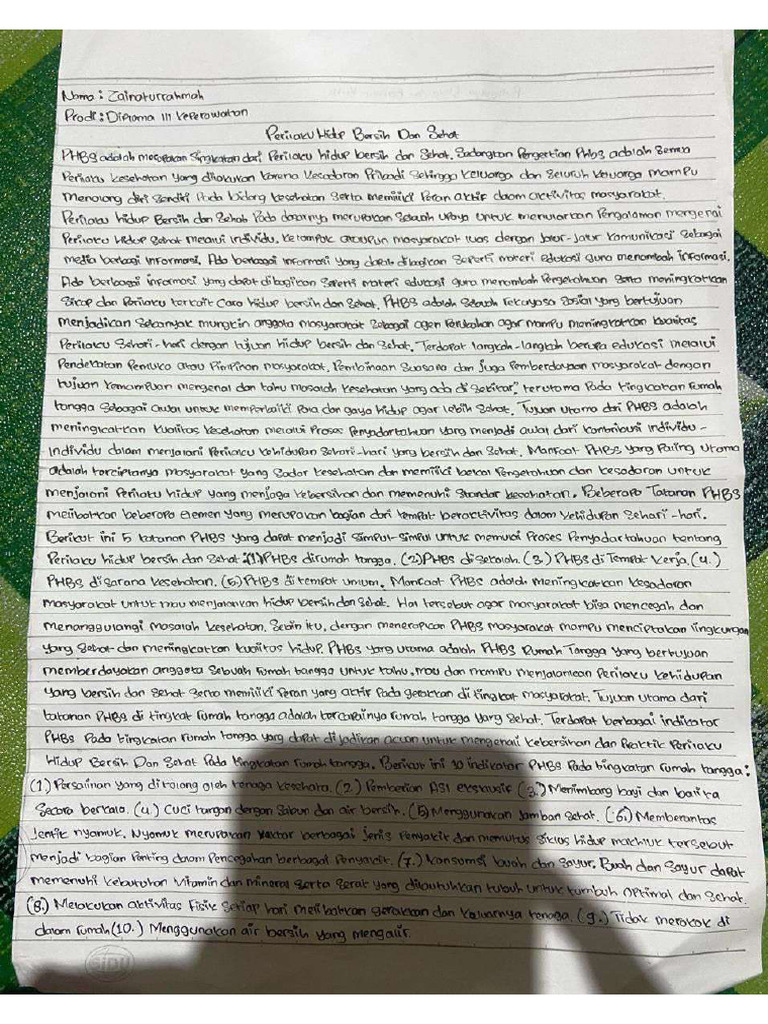 Nama : Zainaturrahmah
Prodi : Diploma III Keperawatan
Perilaku Hidup Bersih Dan Sehat
PHBS adalah merupakan singkatan dari Perilaku hidup bersih dan sehat. Sedangkan Pengertian PHBS adalah semua
Perilaku kesehatan yang dilakukan karena kesadaran Pribadi sehingga keluarga dan seluruh keluarga mampu
menolong diri sendiri Pada bidang kesehatan serta memiliki Peran aktif dalam aktivitas masyarakat.
Perilaku hidup Bersih dan sehat Pada dasarnya merupakan sebuah upaya untuk menularkan Pengalaman mengenai
Perilaku Hidup sehat melalui individu, kelompok ataupun masyarakat luas dengan jalur-jalur komunikasi sebagai
media berbagi informasi. Ada berbagai informasi yang dapat dibagikan seperti materi edukasi guna menambah informasi.
Ada berbagai informasi yang dapat dibagikan seperti materi edukasi guna menambah Pengetahuan serta meningkatkan
sikap dan Perilaku terkait cara hidup bersih dan sehat. PHBS adalah sebuah rekayasa sosial yang bertujuan
menjadikan sebanyak mungkin anggota masyarakat sebagai agen Perubahan agar mampu meningkatkan kualitas
Perilaku sehari-hari dengan tujuan hidup bersih dan sehat. Terdapat langkah-langkah berupa edukasi melalui
Pendekatan Pemuka atau Pimpinan masyarakat. Pembinaan suasana dan juga Pemberdayaan masyarakat dengan
tujuan kemampuan mengenal dan tahu masalah kesehatan yang ada di sekitar", terutama Pada tingkatan rumah
tangga sebagai awal untuk memperbaiki Pola dan gaya hidup agar lebih sehat. Tujuan utama dari PHBS adalah
meningkatkan kualitas kesehatan melalui Proses Penyadartahuan yang menjadi awal dari kontribusi individu-
individu dalam menjalani Perilaku kehidupan sehari-hari yang bersih dan sehat. Manfaat PHBS yang Paling utama
adalah terciptanya masyarakat yang sadar kesehatan dan memiliki bekal Pengetahuan dan kesadaran untuk
menjalani Perilaku hidup yang menjaga kebersihan dan memenuhi standar kesehatan. Beberapa Tatanan PHBS
melibatkan beberapa elemen yang merupakan bagian dari tempat beraktivitas dalam kehidupan sehari-hari.
Berikut ini 5 tatanan PHBS yang dapat menjadi simpul-simpul untuk memulai Proses Penyadartahuan tentang
Perilaku hidup bersih dan sehat : (1) PHBS dirumah tangga. (2) PHBS di sekolah. (3.) PHBS di Tempat kerja. (4.)
PHBS di sarana kesehatan. (5) PHBS di tempat umum. Manfaat PHBS adalah meningkatkan kesadaran
masyarakat untuk mau menjalankan hidup bersih dan sehat. Hal tersebut agar masyarakat bisa mencegah dan
menanggulangi masalah kesehatan. Selain itu, dengan menerapkan PHBS masyarakat mampu menciptakan lingkungan
yang sehat dan meningkatkan kualitas hidup. PHBS yang utama adalah PHBS Rumah Tangga yang bertujuan
memberdayakan anggota sebuah rumah tangga untuk tahu, mau dan mampu menjalankan Perilaku kehidupan
yang bersih dan sehat serta memiliki Peran yang aktif Pada gerakan di tingkat masyarakat. Tujuan utama dari
tatanan PHBS di tingkat rumah tangga adalah tercapainya rumah tangga yang sehat. Terdapat berbagai indikator
PHBS Pada tingkatan rumah tangga yang dapat dijadikan acuan untuk mengenali kebersihan dan Praktik Perilaku
Hidup Bersih Dan Sehat Pada tingkatan rumah tangga. Berikut ini 10 indikator PHBS Pada tingkatan rumah tangga :
(1) Persalinan yang ditolong oleh tenaga kesehata. (2) Pemberian ASI eksklusif (3.) Menimbang bayi dan balita
secara berkala. (4.) Cuci tangan dengan sabun dan air bersih. (5) Menggunakan jamban sehat. (6.) Memberantas
jentik nyamuk. Nyamuk merupakan vektor berbagai jenis Penyakit dan memutus siklus hidup makhluk tersebut
menjadi bagian Penting dalam Pencegahan berbagai Penyakit. (7.) Konsumsi buah dan sayur. Buah dan sayur dapat
memenuhi kebutuhan vitamin dan mineral serta serat yang dibutuhkan tubuh untuk tumbuh optimal dan sehat.
(8.) Melakukan aktivitas Fisik setiap hari melibatkan gerakan dan keluarnya tenaga. (9.) Tidak merokok di
dalam rumah (10.) Menggunakan air bersih yang mengalir.
SiDU